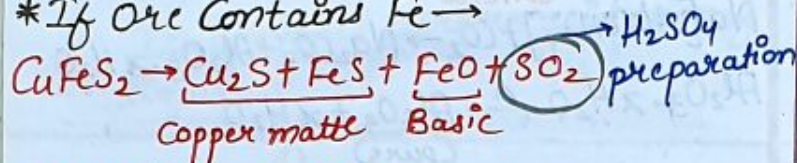 *If Ore Contains Fe→
→H₂SO₄
CuFeS₂→Cu₂S+FeS+FeO+SO₂ preparation
Copper matte Basic